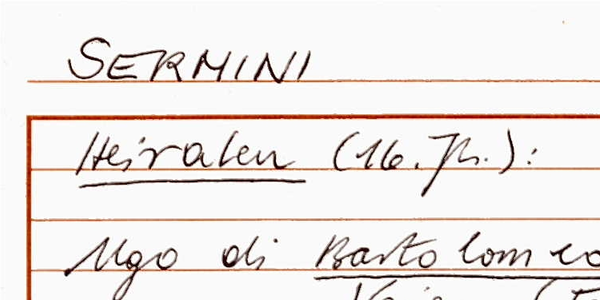 SERMINI
Heiraten (16. Jh.):
Ugo di Bartolomeo